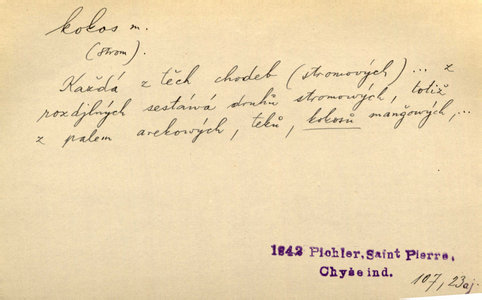 kokos m.
(strom).
Každá z těch chodeb (stromových) ... z
rozdílných sestává druhů stromových, totiž
z palem arekových, teků, kokosů mangových, ...
1842 Pichler, Saint Pierre,
Chyše ind.
107, 23aj.